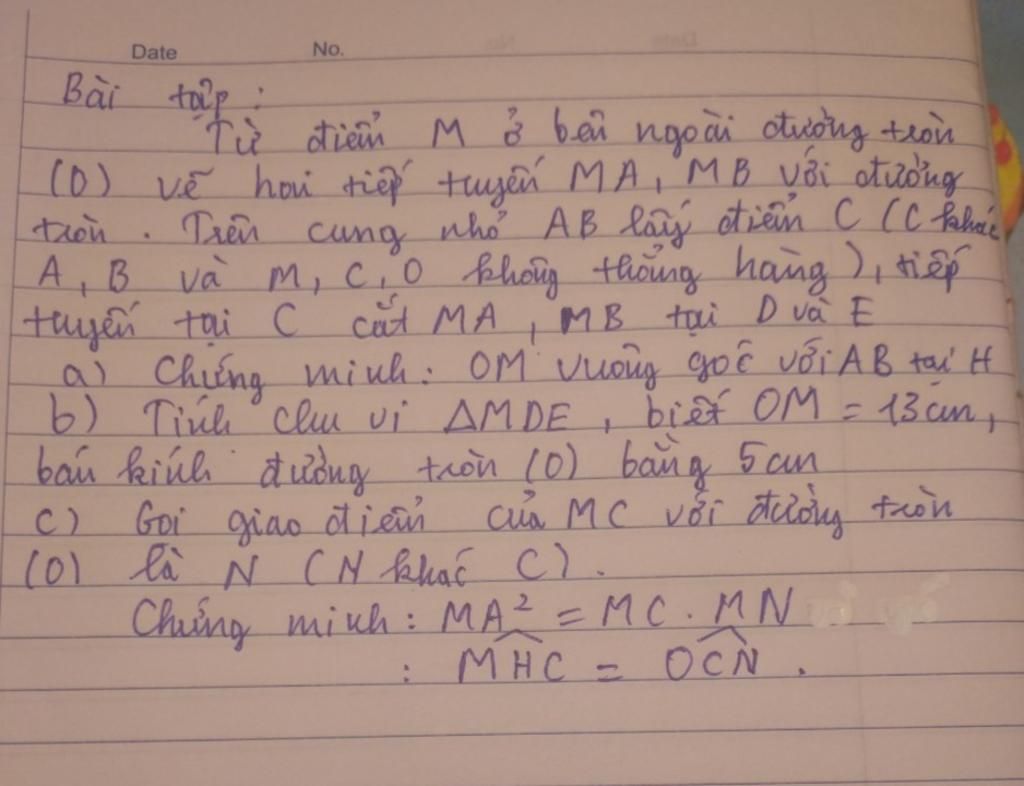 Date No.
Bài tập :
Từ điểm M ở bên ngoài đường tròn
(O) vẽ hai tiếp tuyến MA, MB với đường
tròn. Trên cung nhỏ AB lấy điểm C (C khác
A, B và M, C, O không thẳng hàng), tiếp
tuyến tại C cắt MA, MB tại D và E
a) Chứng minh: OM vuông góc với AB tại H
b) Tính chu vi ΔMDE, biết OM = 13cm,
bán kính đường tròn (O) bằng 5cm
c) Gọi giao điểm của MC với đường tròn
(O) là N (N khác C).
Chứng minh: MA² = MC . MN
: \widehat{MHC} = \widehat{OCN} .